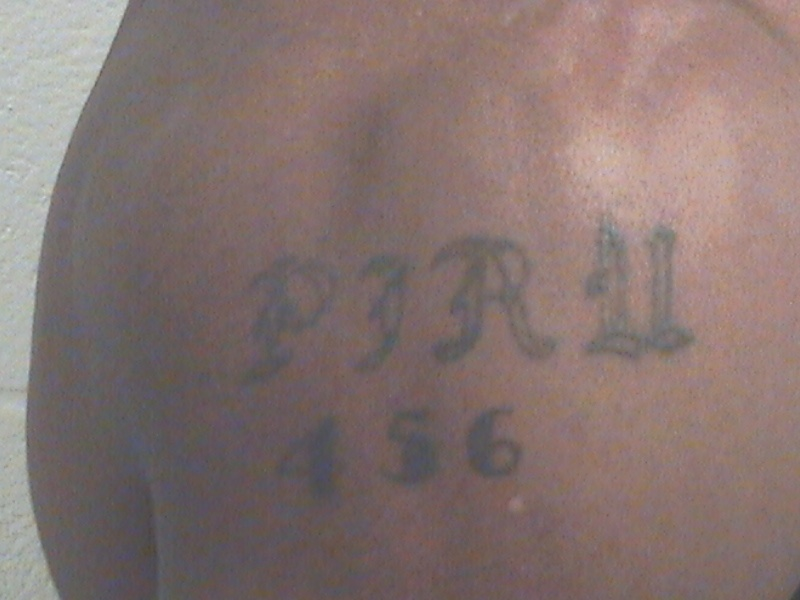 PIRU
456